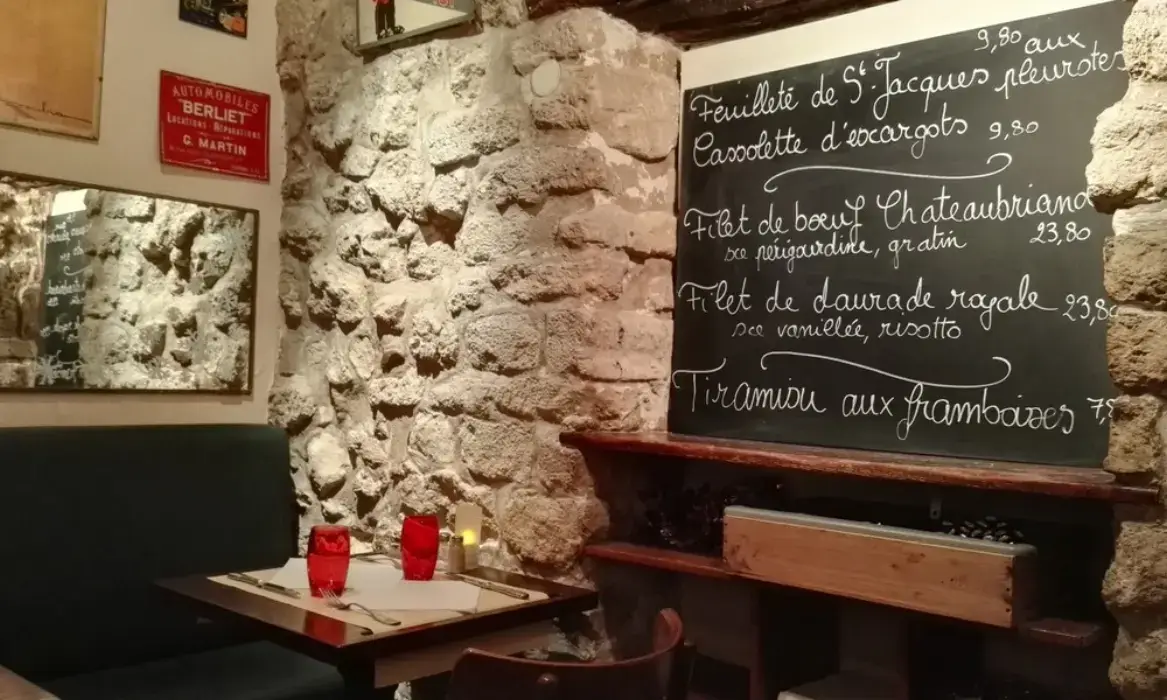 AUTOMOBILES
"BERLIET"
Locations - Réparations
G. MARTIN
9,80 aux
Feuilleté de St-Jacques pleurotes
Cassolette d'escargots 9,80
Filet de bœuf Chateaubriand
sce périgourdine, gratin 23,80
Filet de daurade royale 23,80
sce vanillée, risotto
Tiramisu aux framboises 7,